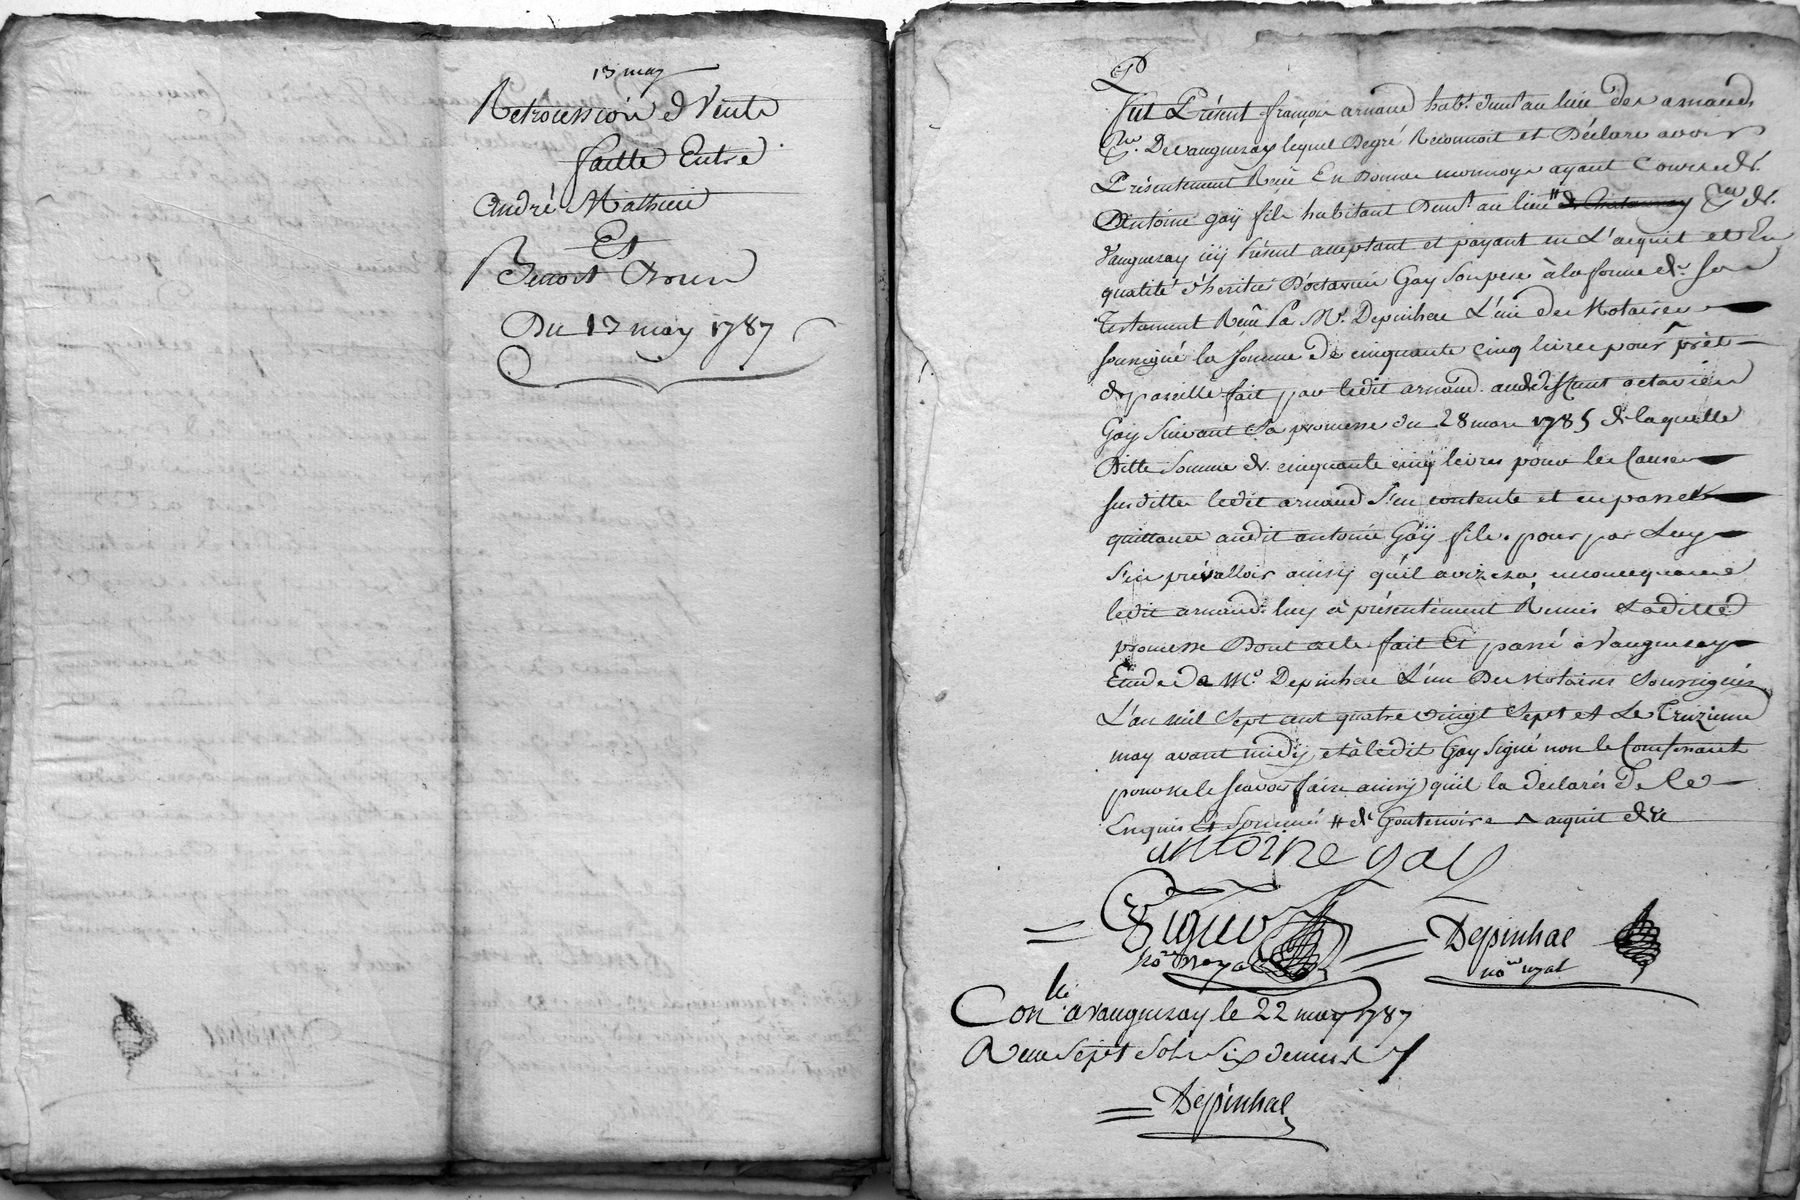 13 may
Retrocession de Vente
faitte Entre
André Mathieu
Et
Benoist
Du 13 may 1787
P
Fut Présent françois arnaud hab.t dem.t au lieu des arnauds
P.sse De vaugneray lequel Degré Reconnoit et Déclare avoir
Présentement Reçû En Bonne monnoye ayant Cours de
Antoine gaÿ fils habitant Dem.t au lieu # P.sse de
Vaugneray icy Présent acceptant et payant en L'acquit et En
qualité d'heritier D'octavien Gay Son pere à la forme de Son
Testament Reçû Par M.e Depinhac L'un des Notaires
soussigné la Somme de cinquante cinq livres pour prêt
de pareille fait par ledit arnaud audit deffunt octavien
Gay Suivant Sa promesse du 28 mars 1785 de laquelle
Ditte Somme de cinquante cinq livres pour les Causes
susdittes ledit arnaud S'en contente et en passe
quittance audit antoine Gaÿ fils pour par Luy
S'en prévalloir ainsy qu'il avizera
ledit arnaud luy à présentement Remis Laditte
promesse Dont acte fait Et passé à Vaugneray
Etude de M.e Depinhac L'un Des Notaires Soussignés
L'an mil Sept cent quatre vingt Sept et Le Treizieme
may avant midy et à ledit Gay Signé non le Comparant
pour ne le scavoir faire ainsy qu'il la declaré De Ce
Enquis Et Sommés # de Goutenoire
antoine gay
no.re royal
Depinhac
no.re royal
Con.lle a vaugneray le 22 may 1787
Reçu Sept Sols Six deniers
Depinhac